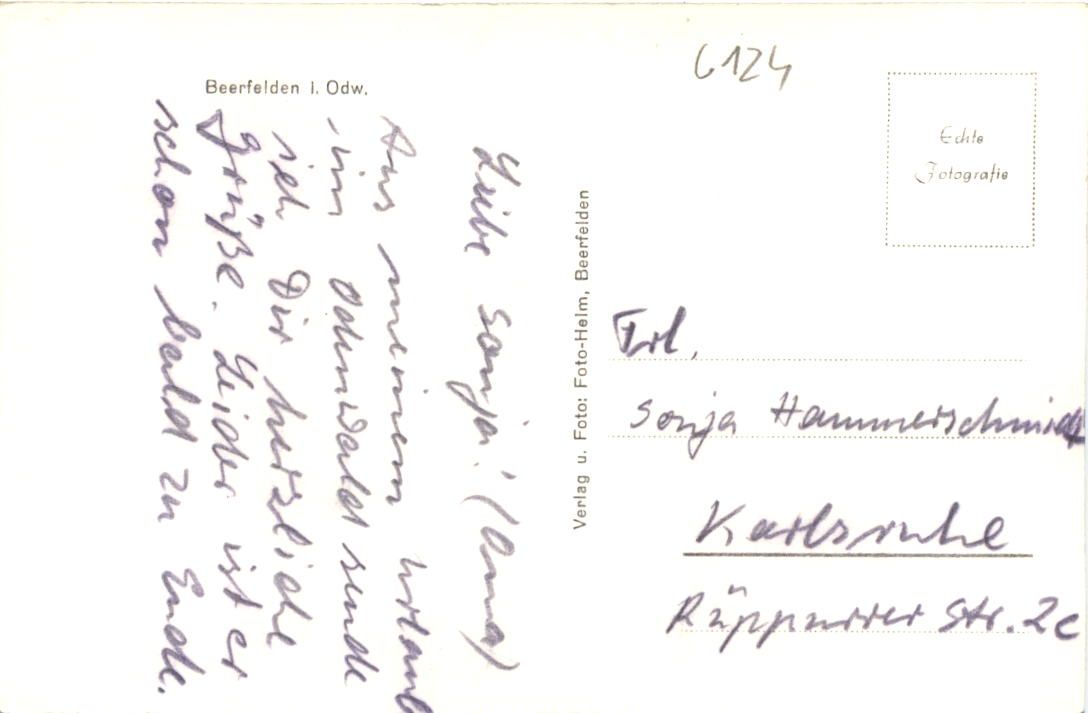 Beerfelden i. Odw.
6124
Echte
Fotografie
Liebe Sonja! (Oma)
Aus meinem Urlaub
im Odenwald sende
ich Dir herzliche
Grüße. Leider ist er
schon bald zu Ende.
Verlag u. Foto: Foto-Helm, Beerfelden
Frl.
Sonja Hammerschmidt
Karlsruhe
Rüppurrer Str. 2c